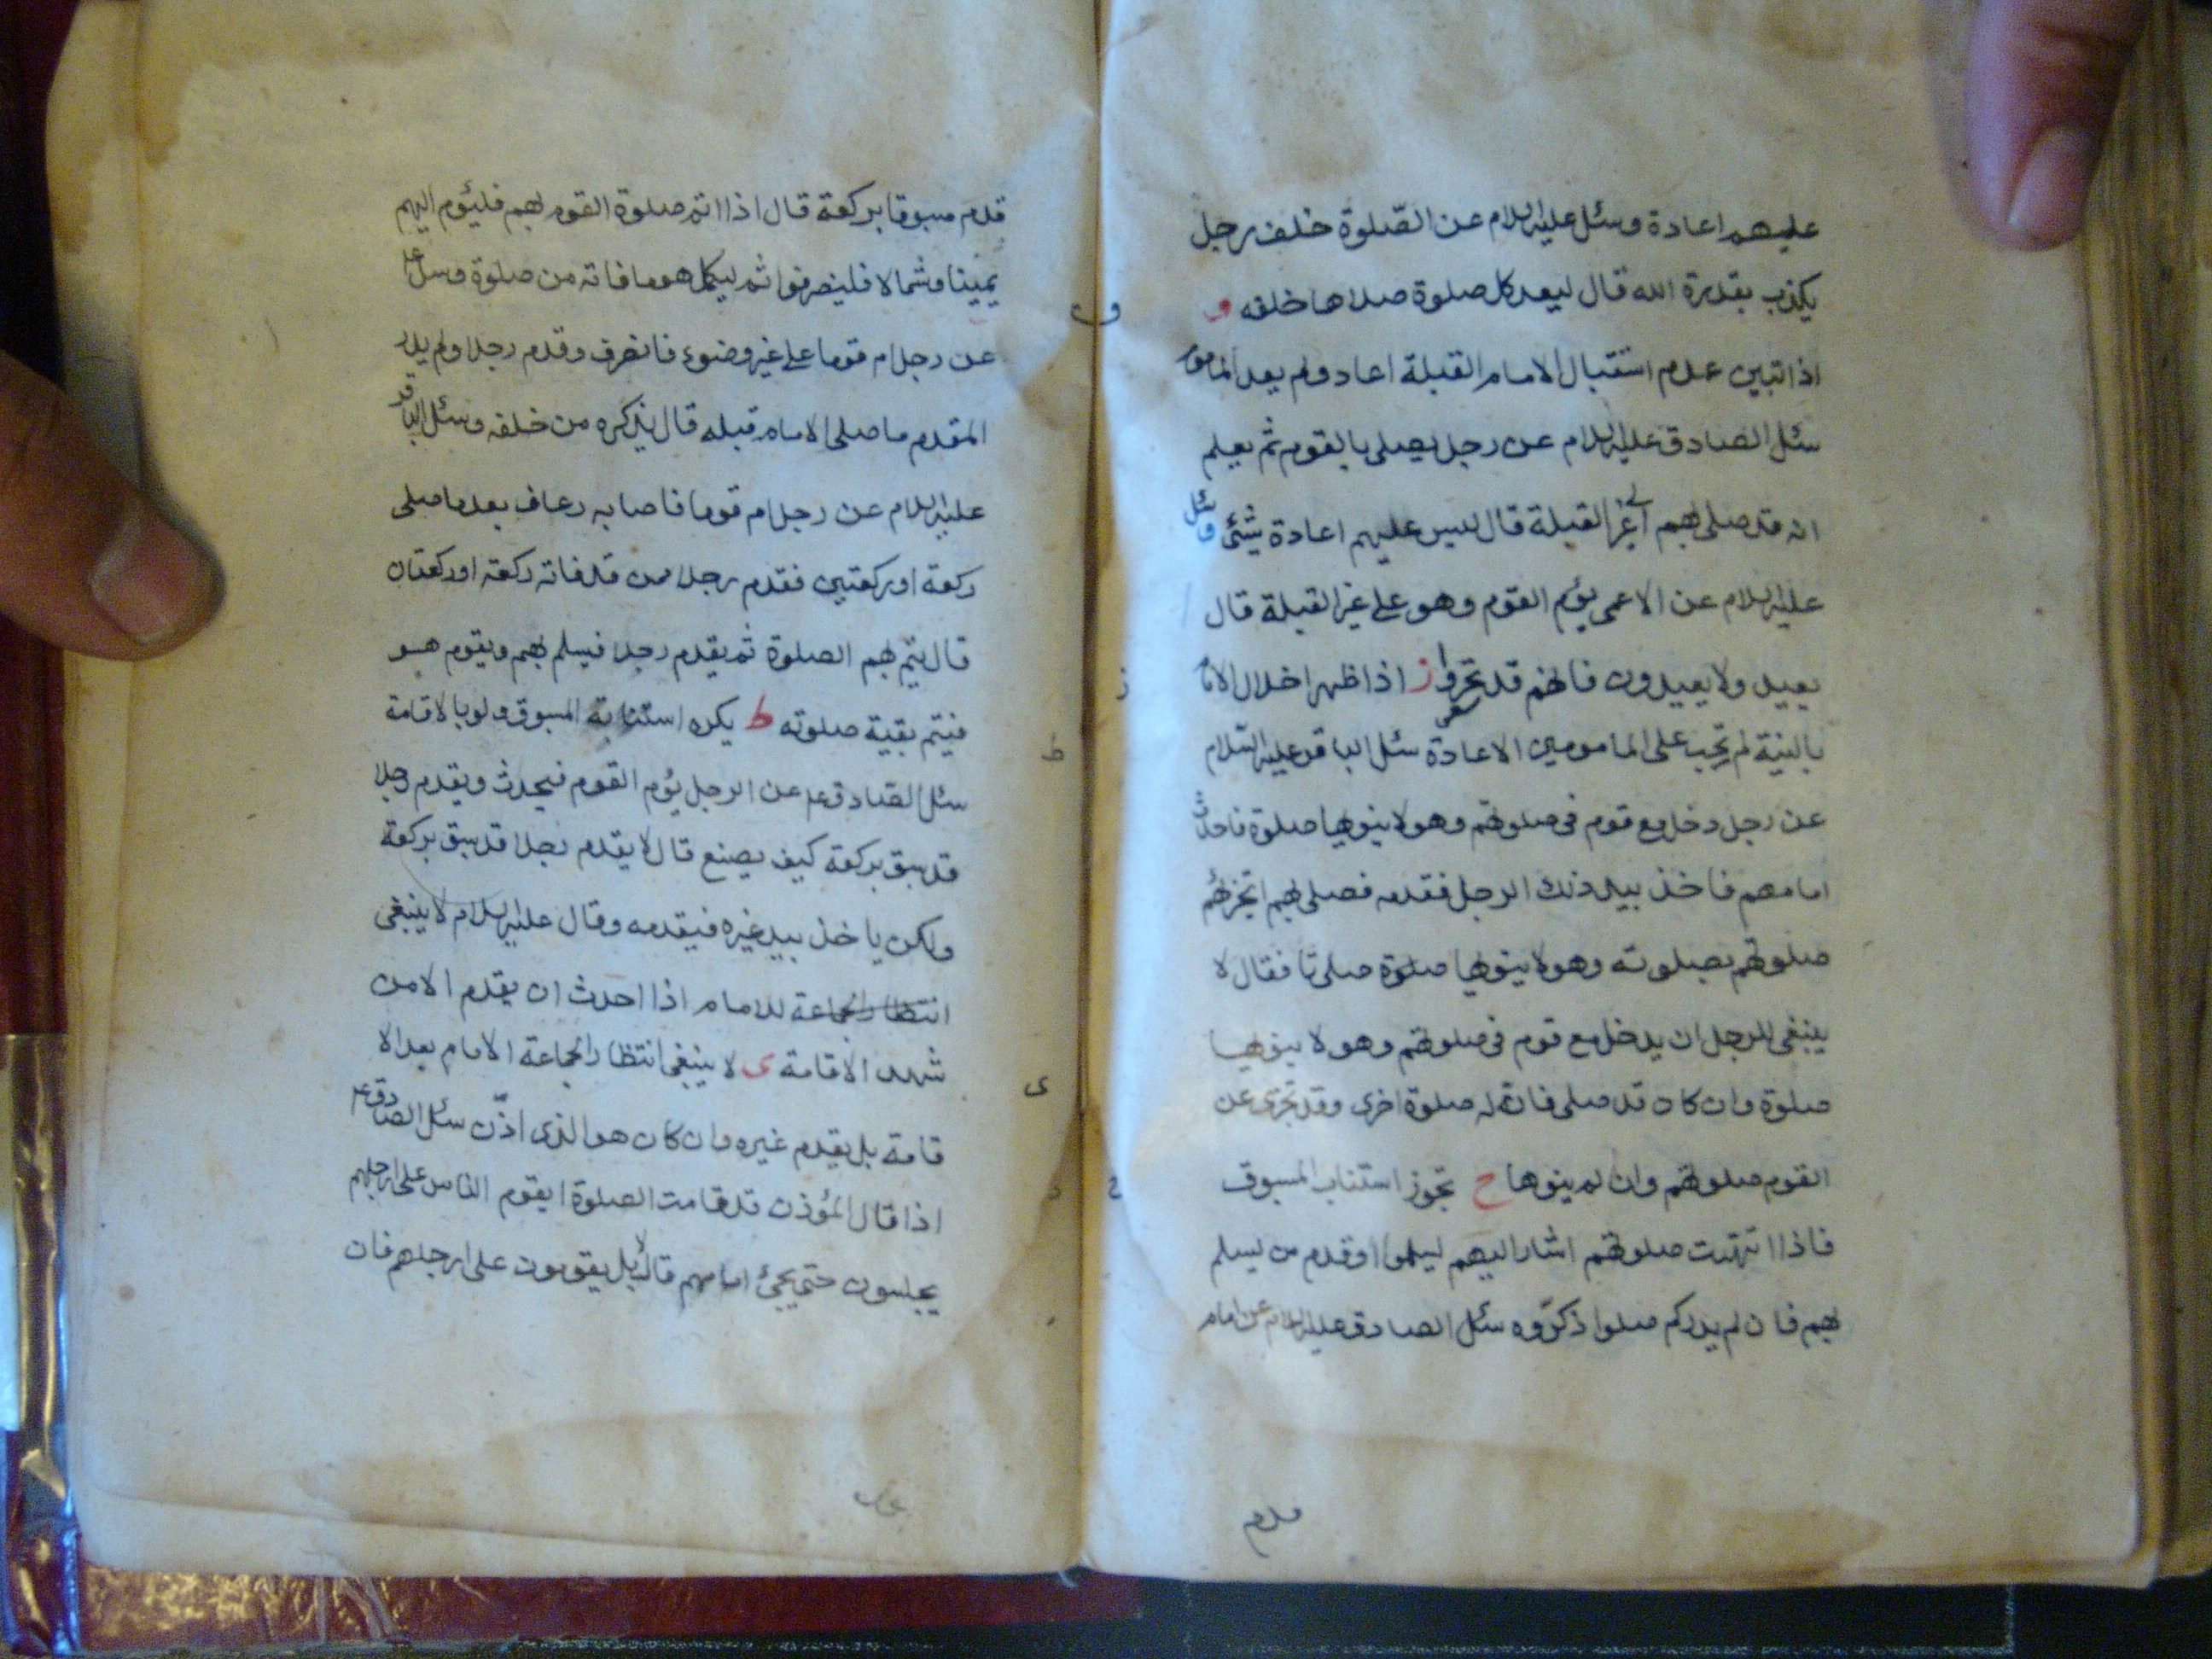 عليهم اعادة وسئل عليه السلام عن الصّلوة خلف رجل
يكذب بقدرة الله قال ليعد كل صلوة صلاها خلفه و
اذا تبين عدم استقبال الامام القبلة اعاد ولم يعد المأموم
سئل الصادق عليه السلام عن رجل يصلى بالقوم ثم يعلم
انه قد صلى بهم الى غير القبلة قال ليس عليهم اعادة شئ وسئل
عليه السلام عن الاعمى يؤم القوم وهو على غير القبلة قال
يعيد ولا يعيدون فانهم قد تحروا ز اذا ظهر اخلال الامام
بالنية لم تجب على المامومين الاعادة سئل الباقر عليه السلام
عن رجل دخل مع قوم فى صلوتهم وهو لا ينويها صلوة فاحدث
امامهم فاخذ بيد ذلك الرجل فقدمه فصلى بهم اتجزئهم
صلوتهم بصلوته وهو لا ينويها صلوة فقال لا
ينبغى للرجل ان يدخل مع قوم فى صلوتهم وهو لا ينويها
صلوة وان كان قد صلى فان له صلوة اخرى وقد تجزى عن
القوم صلوتهم وان لم ينوها ح تجوز استناب المسبوق
فاذا انتهت صلوتهم اشار اليهم ليسلموا او قدم من يسلم
بهم فان لم يدركم صلوا ذكّروه سئل الصادق عليه السلام عن امام
قدم
قدم مسبوقا بركعة قال اذا اتم صلوة القوم بهم فليؤم اليهم
يمينا وشمالا فلينصرفوا ثم ليكمل هو ما فاته من صلوة وسئل
عن رجل ام قوما على غير وضوء فانصرف وقدم رجلا ولم يدر
المقدم ما صلى الامام قبله قال يذكره من خلفه وسئل الباقر
عليه السلام عن رجل ام قوما فاصابه رعاف بعد ما صلى
ركعة او ركعتين فقدم رجلا ممن قد فاته ركعة او ركعتان
قال يتم بهم الصلوة ثم يقدم رجلا فيسلم بهم ويقوم هو
فيتم بقية صلوته ط يكره استنابة المسبوق ولو بالاقامة
سئل الصادق ع عن الرجل يؤم القوم فيحدث ويقدم رجلا
قد سبق بركعة كيف يصنع قال لا يقدم رجلا قد سبق بركعة
ولكن ياخذ بيد غيره فيقدمه وقال عليه السلام لا ينبغى
انتظار الجماعة للامام اذا احدث ان يقدم الا من
شهد الاقامة ى لا ينبغى انتظار الجماعة الامام بعد الا
قامة بل يقدم غيره وان كان هو الذى اذّن سئل الصادق ع
اذا قال المؤذن قد قامت الصلوة ايقوم الناس على ارجلهم
يجلسون حتى يجئ امامهم قال لا بل يقومون على ارجلهم فان